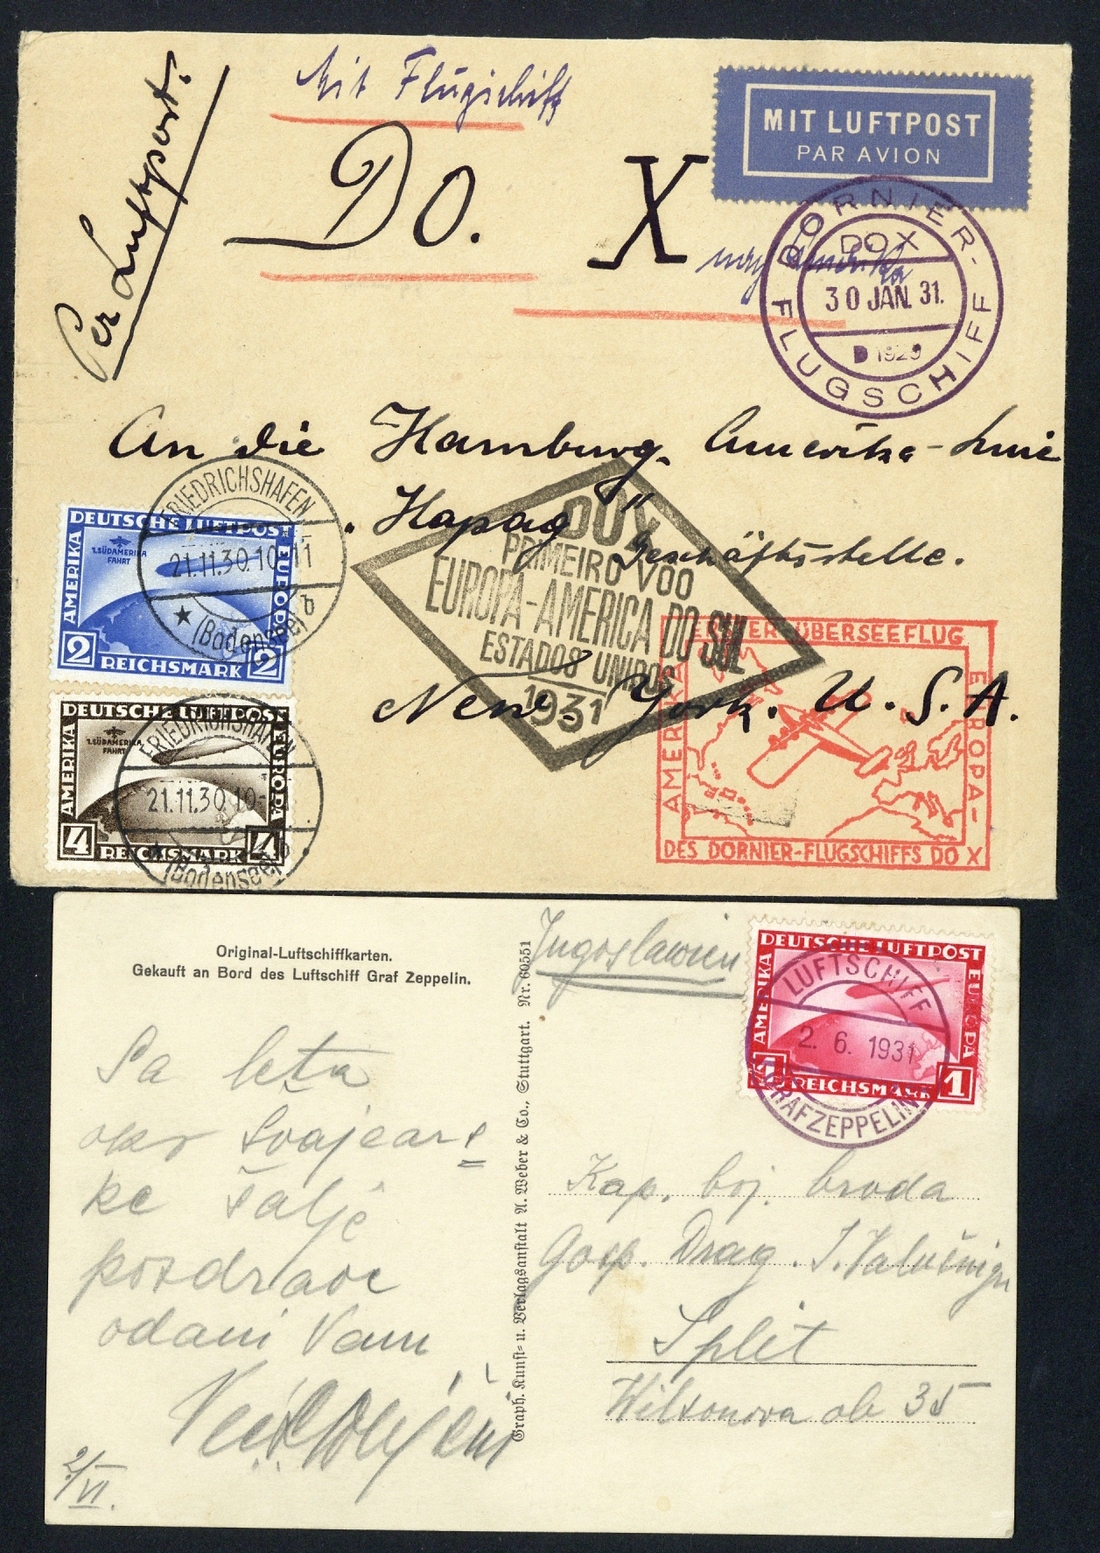 Mit Flugschiff
Per Luftpost.
DO. X
nach Amerika
MIT LUFTPOST
PAR AVION
DORNIER-
DOX
30 JAN. 31.
D 1929
FLUGSCHIFF
An die Hamburg. Amerika-Linie
„Hapag" Geschäftsstelle.
New-York. U.S.A.
DOX
PRIMEIRO VOO
EUROPA-AMERICA DO SUL
ESTADOS UNIDOS
1931
ERSTER ÜBERSEEFLUG
AMERIKA
EUROPA-
DES DORNIER-FLUGSCHIFFS DO X
FRIEDRICHSHAFEN
21.11.30.10-11
★ b
(Bodensee)
DEUTSCHE LUFTPOST
AMERIKA
1.SÜDAMERIKA
FAHRT
EUROPA
2 REICHSMARK 2
DEUTSCHE LUFTPOST
AMERIKA
1.SÜDAMERIKA
FAHRT
EUROPA
4 REICHSMARK 4
FRIEDRICHSHAFEN
21.11.30.10-11
(Bodensee)
Original-Luftschiffkarten.
Gekauft an Bord des Luftschiff Graf Zeppelin.
Graph. Kunst- u. Verlagsanstalt A. Weber & Co., Stuttgart. Nr. 60551
Jugoslawien
DEUTSCHE LUFTPOST
AMERIKA
EUROPA
1 REICHSMARK 1
LUFTSCHIFF
2. 6. 1931
GRAF ZEPPELIN
Sa leta
oko Svajcars
ke šalje
pozdrave
odani Vam
2/VI.
Kap. boj. broda
Gosp. Drag. J.
Split
Wilsonova ob 35